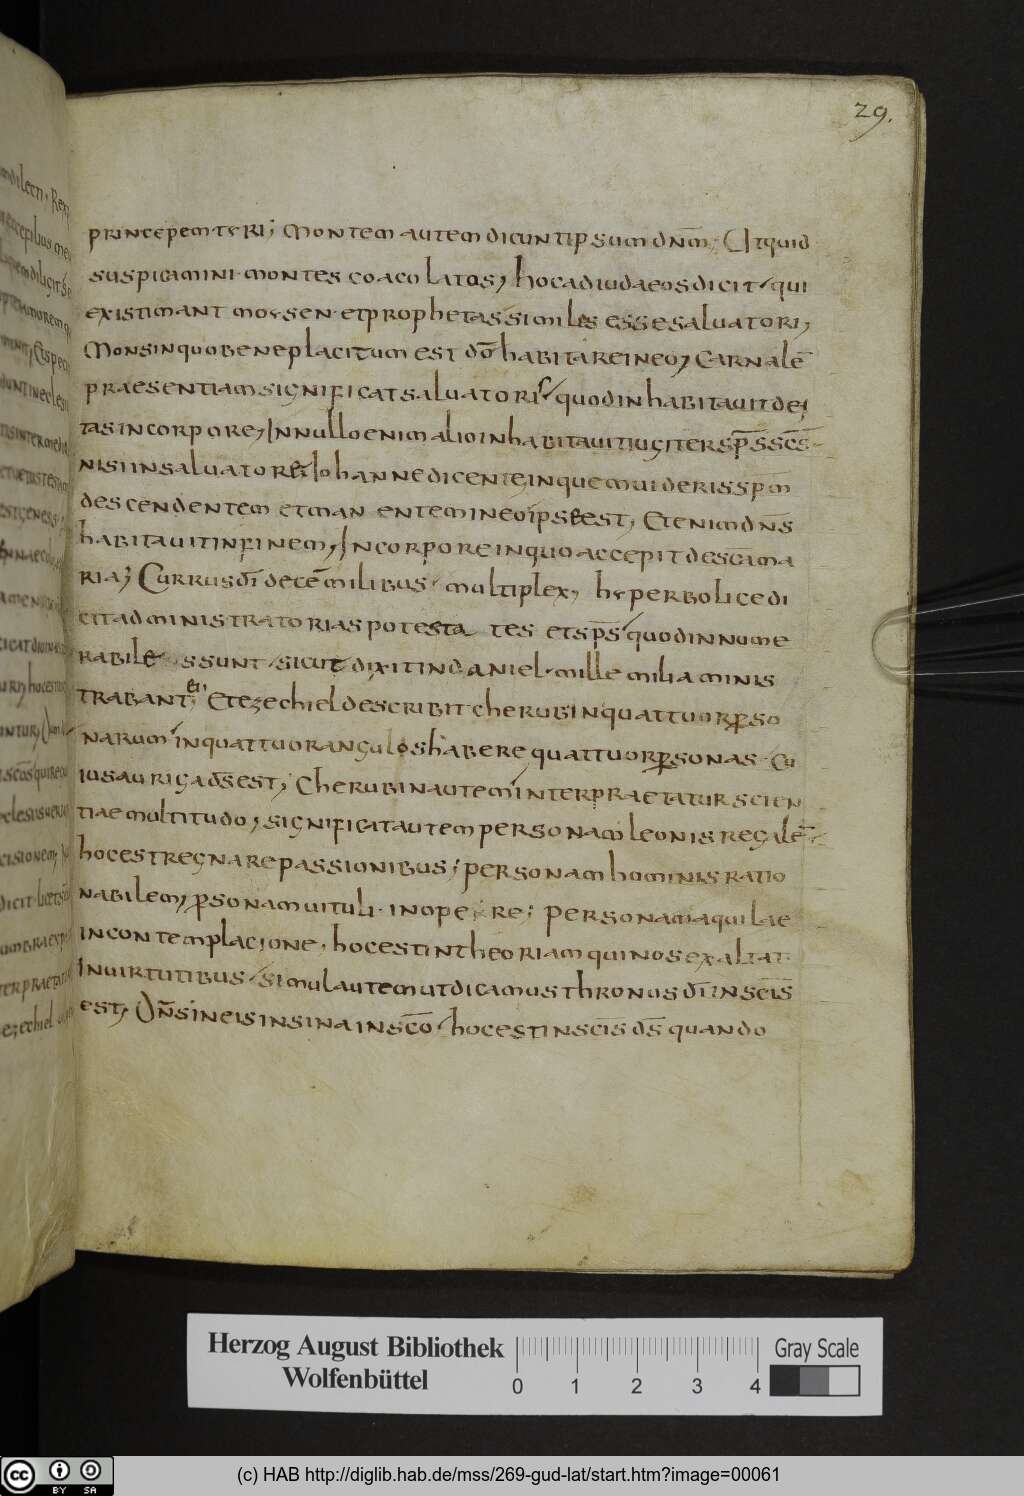 29.
princepem teri; Montem autem dicunt ipsum dn̄m; Utquid
suspicamini montes coacolatos, hoc ad iudaeos dicit, qui
existimant moysen et prophetas similes esse saluatori,
Mons in quo beneplacitum est dō habitare in eo, Carnalē
praesentiam significat saluatoris, quod inhabitauit dei
tas in corpore, In nullo enim alio inhabitauit iugiter sp̄s sc̄s
nisi in saluatore, Iohanne dicente, in quem uideris sp̄m
descendentem et manentem in eo ipse est, Etenim dn̄s
habitauit in finem, In corpore in quo accepit de sc̄a ma
ria; Currus dī decē milibus multiplex, hyperbolice di
cit administratorias potesta tes et sp̄s quod innume
rabiles sunt sicut dixit in daniel mille milia minis
trabant ei; Et ezechiel describit cherubin quattuor perso
narum in quattuor angulos habere quattuor personas cu
ius auriga ds̄ est; Cherubin autem interpraetatur scien
tiae multitudo, significat autem personam leonis regalē
hoc est regnare passionibus; personam hominis ratio
nabilem, personam uituli in opere; personam aquilae
in contemplacione, hoc est in theoriam qui nos exaltat
In uirtutibus simul autem ut dicamus thronus dī in sc̄is
est, Dn̄s in eis in sina in sc̄o hoc est in sc̄is ds̄ quando
Herzog August Bibliothek
Wolfenbüttel
0 1 2 3 4
Gray Scale
cc BY SA
(c) HAB http://diglib.hab.de/mss/269-gud-lat/start.htm?image=00061